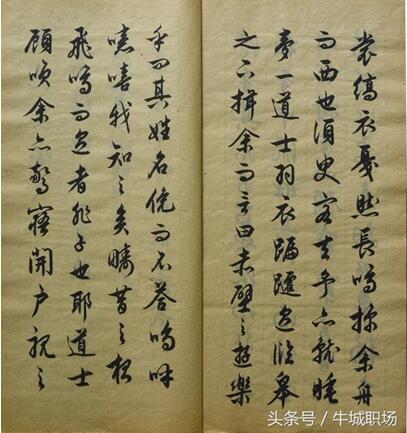 裳縞衣戛然長鳴掠余舟
而西也須臾客去予亦就睡
夢一道士羽衣蹁躚過臨皋
之下揖余而言曰赤壁之遊樂
乎問其姓名俛而不答嗚呼
噫嘻我知之矣疇昔之夜
飛鳴而過者非子也耶道士
顧咲余亦驚寤開戶視之
头条号 / 牛城职场